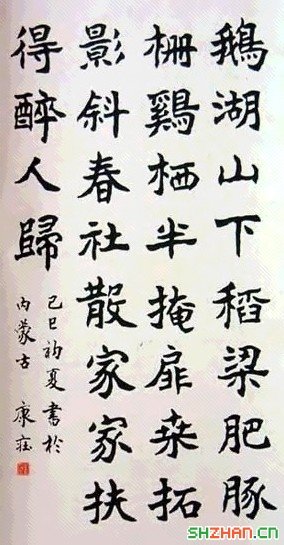 鵝湖山下稻梁肥豚
柵鷄栖半掩扉桒拓
影斜春社散家家扶
得醉人歸
己巳初夏書於
内蒙古 康莊
SHZHAN.CN